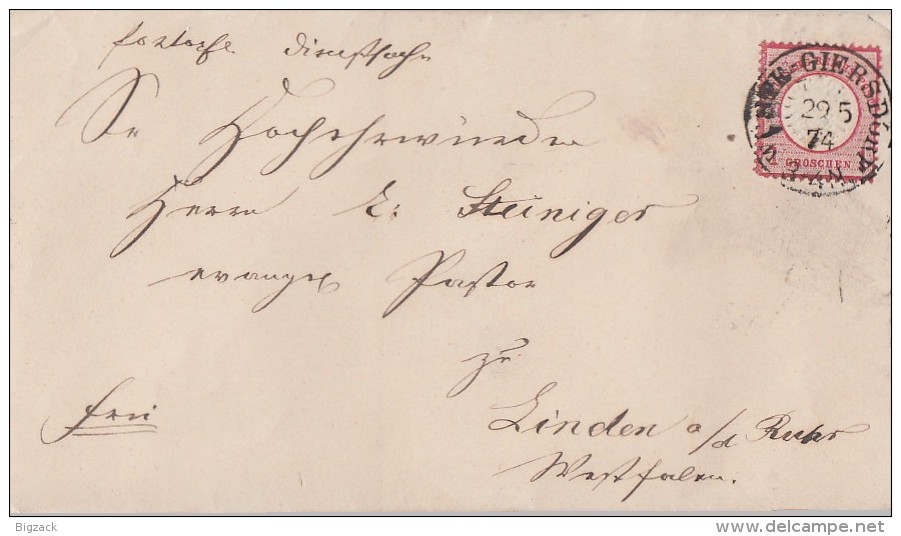 portopfl. Dienstsache
Sr Hochehrwürden
Herrn E. Steiniger
evangel Pastor
zu
Linden a/d Ruhr
Westfalen.
frei
GIERSDORF
29 5
74
1 GROSCHEN
Bigzack
www.delcampe.net